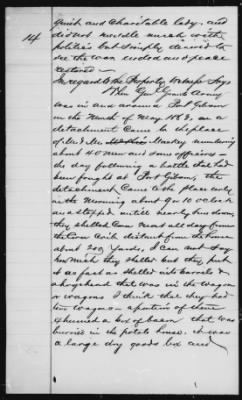 14
quiet and charitable lady, and
did not meddle much with
politics but simply desired to
see the war ended and peace
restored —
In regard to the Property, witness Says
When Gen Grants Army
was in and around Port Gibson
in the Month of May 1863, a
detachment Came to the place
of Mrs Mackey numbering
about 40 men and some officers on
the day following a battle that had
been fought at Port Gibson, the
detachment Came to the place early
in the Morning about 9 or 10 o'clock
and stopped until nearly sundown,
they shelled Corn most all day from
the Corn Crib distant from the house
about 200 Yards, I can not Say
how much they shelled but they put
it as fast as shelled into barrels &
a hogshead that was in the wagon
or wagons I think that they had
two wagons — a portion of them
exhumed a box of bacon that was
buried in the potato house. it was
a large dry goods box and